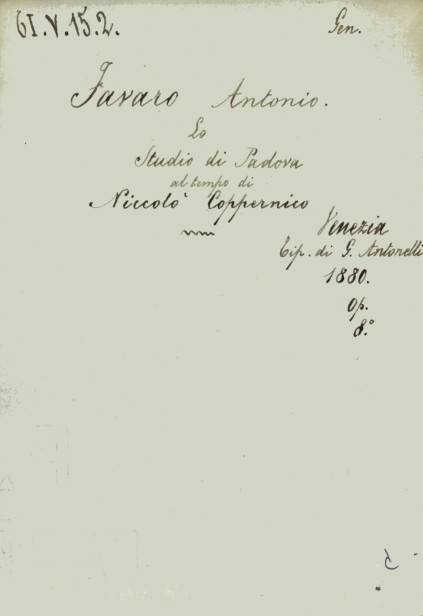 61.V.15.2.
Gen.
Favaro Antonio.
Lo
Studio di Padova
al tempo di
Niccolò Coppernico
Venezia
Tip. di G. Antonelli
1880.
Op.
8.°